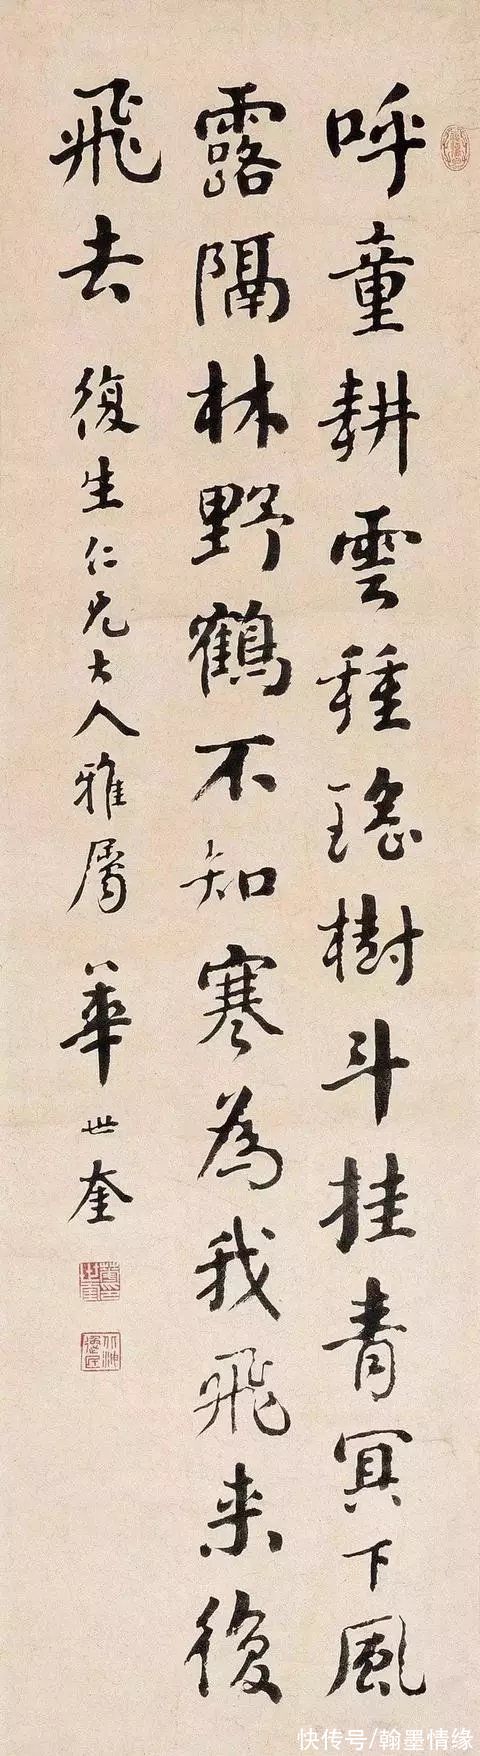 呼童耕雲種瑤樹斗挂青冥下風
露隔林野鶴不知寒為我飛来復
飛去
復生仁兄大人雅屬
華世奎
快传号/翰墨情缘